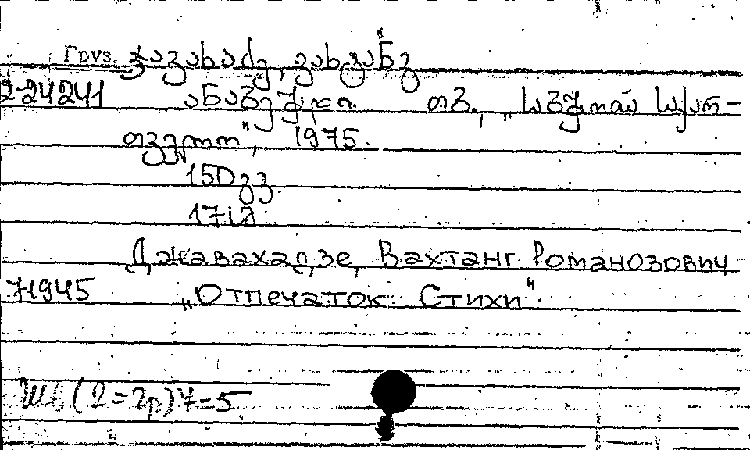 Груз. ჯავახაძე, ვახტანგ
2-24241 ანაბეჭდი. თბ., „საბჭოთა საქარ-
თველო", 1975.
150 გვ.
71945 Джавахадзе, Вахтанг Романозович
„Отпечаток. Стихи".
Шб(2=Гр)7-5